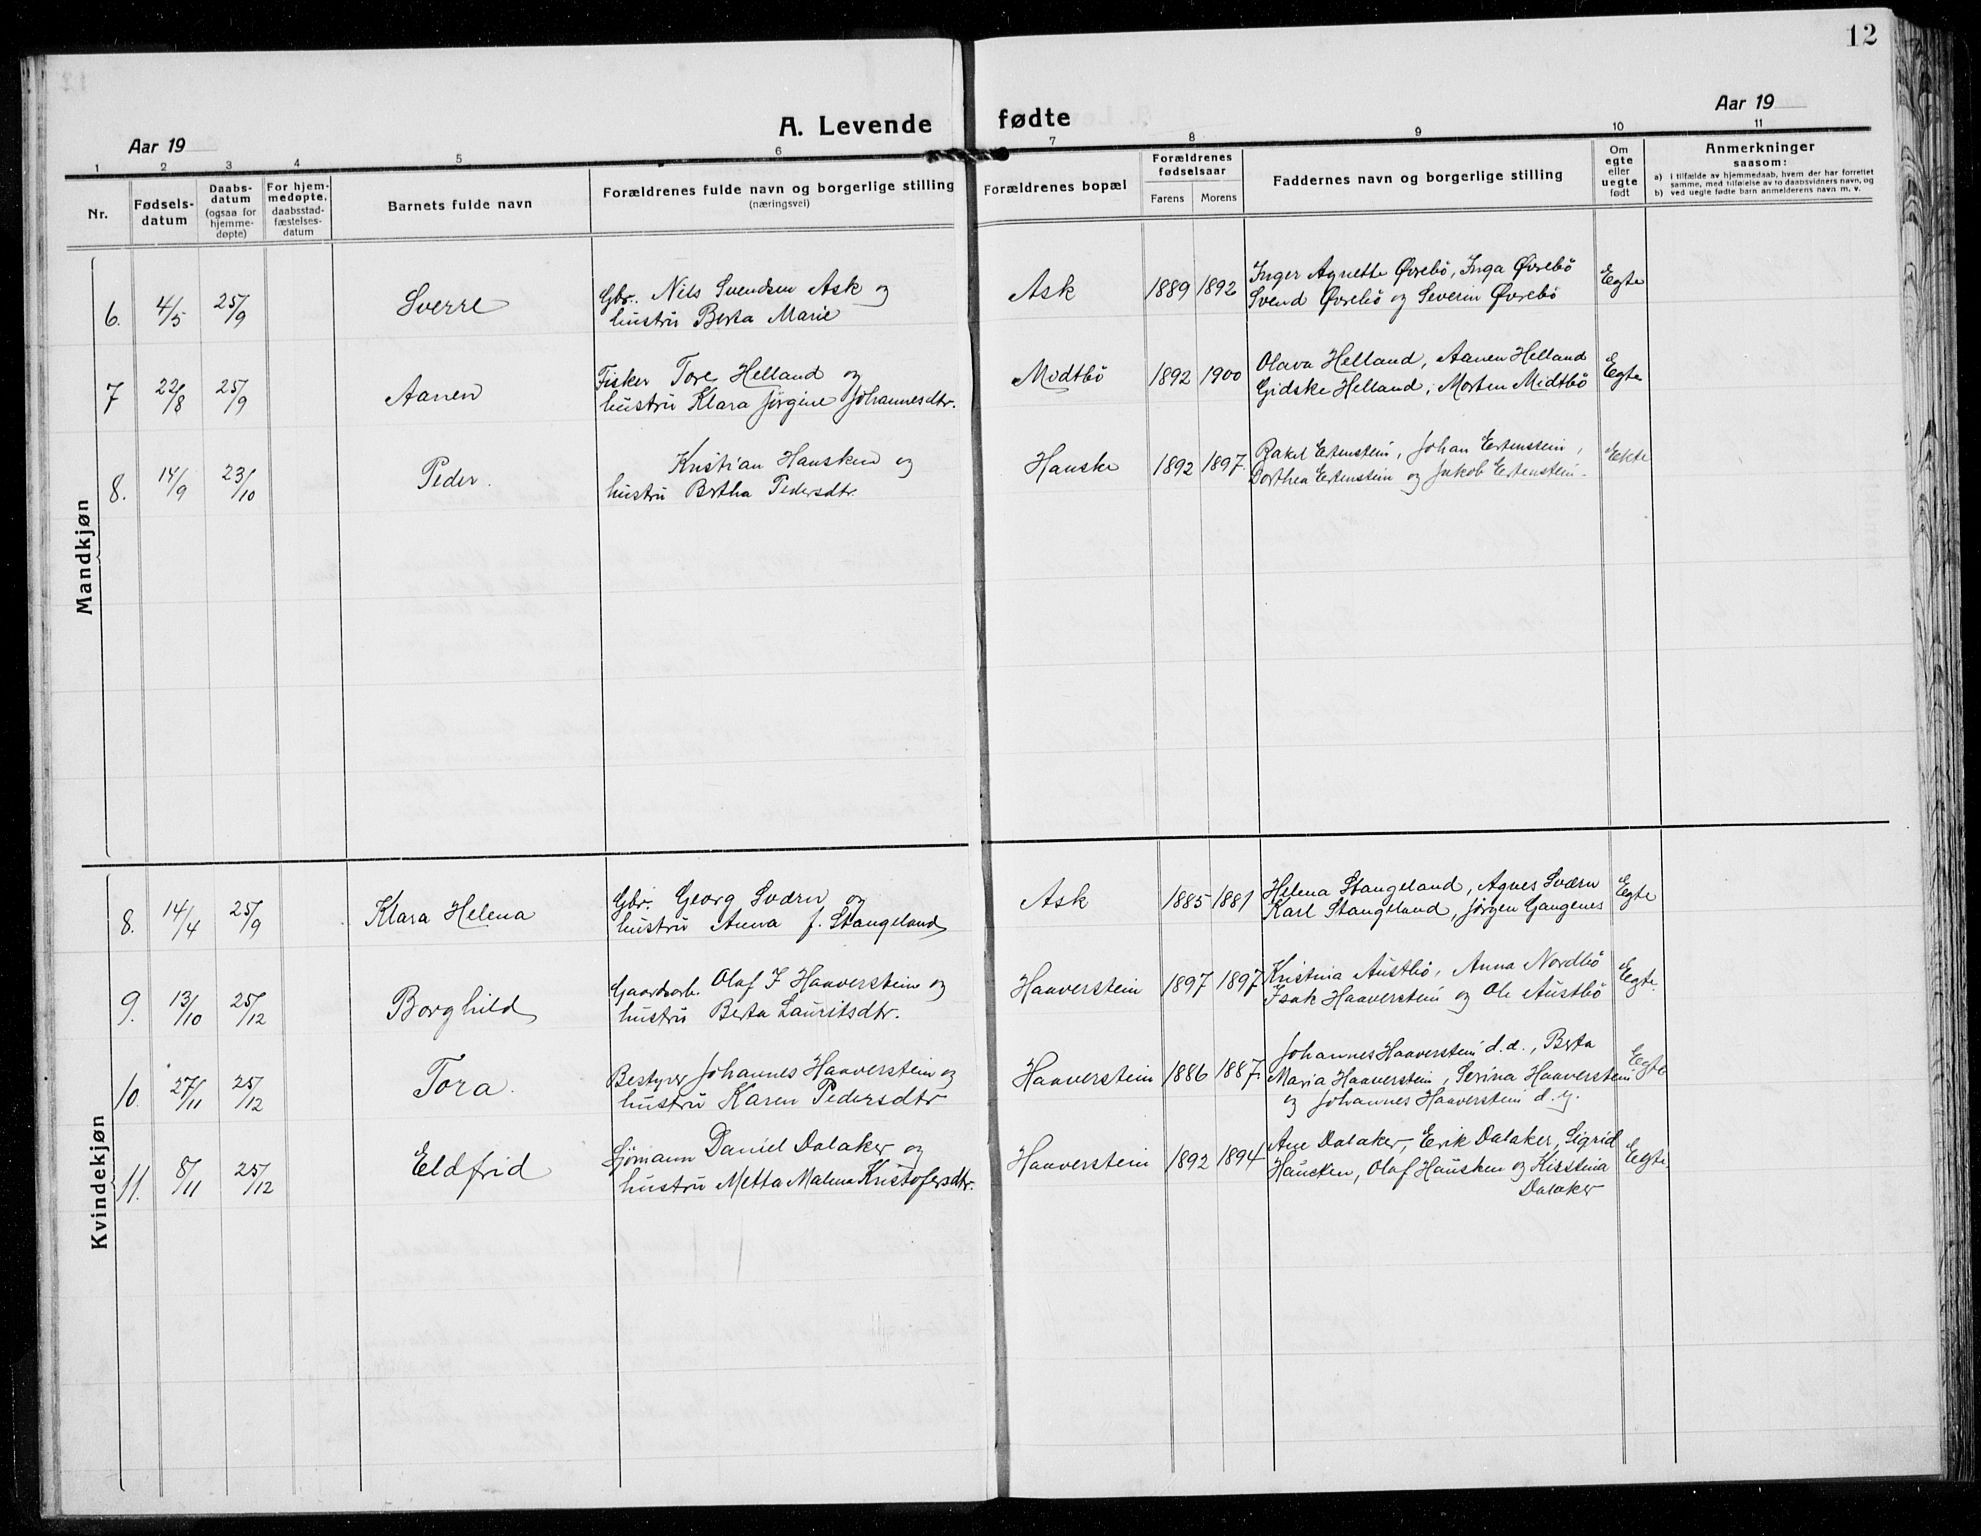 12
Aar 19
A. Levende fødte
Aar 19
1 2 3 4 5 6 7 8 9 10 11
Nr.
Fødsels-
datum
Daabs-
datum
(ogsaa for
hjemme-
døpte)
For hjem-
medøpte.
daabsstad-
fæstelses-
datum
Barnets fulde navn
Forældrenes fulde navn og borgerlige stilling
(næringsvei)
Forældrenes bopæl
Forældrenes
fødselsaar
Farens Morens
Faddernes navn og borgerlige stilling
Om
egte
eller
uegte
født
Anmerkninger
saasom:
a) i tilfælde av hjemmedaab, hvem der har forrettet
samme, med tilføielse av to daabsvidners navn, og
b) ved uegte fødte barn anmelderens navn m. v.
Mandkjøn
6. 4/5 25/9 Sverre Gbr. Nils Svendsen Ask og
hustru Berta Marie
Ask 1889 1892 Inger Agnette Øvrebö, Inga Øvrebö
Svend Øvrebö og Severin Øvrebö
Egte
7 22/8 25/9 Aanen Fisker Tore Helland og
hustru Klara Jørgine Johannesdtr.
Midtbö 1892 1900 Olava Helland, Aanen Helland
Gidske Helland, Morten Midtbö
Egte
8. 14/9 23/10 Peder. Kristian Hausken og
hustru Brtha Pedersdtr.
Hauske 1892 1897. Rakel Ertenstein, Johan Ertenstein,
Dorthea Ertenstein og Jakob Ertenstein.
Ekte
Kvindekjøn
8. 14/4 25/9 Klara Helena Gbr. Georg Sværn og
hustru Anna f. Stangeland
Ask 1885 1881 Helena Stangeland, Agnes Sværn
Karl Stangeland, Jørgen Gangenes
Egte
9. 13/10 25/12 Borghild Gaardsarb. Olaf I Haaverstein og
hustru Berta Lauritsdtr.
Haaverstein 1897 1897 Kristina Austbö, Anna Nordbö
Isak Haaverstein og Ole Austbö
Egte.
10. 27/11 25/12 Tora. Bestyrer Johannes Haaverstein og
hustru Karen Pedersdtr
Haaverstein 1886 1887. Johannes Haaverstein d.æ., Berta
Maria Haaverstein, Serina Haaverstein
og Johannes Haaverstein d. y.
Egte
11. 8/11 25/12 Eldfrid Sjømann Daniel Dalaker og
hustru Metta Malena Kristofersdtr.
Haaverstein 1892 1894 Ane Dalaker, Erik Dalaker, Sigrid
Haucken, Olaf Hausken og Kirstina
Dalaker
Egte